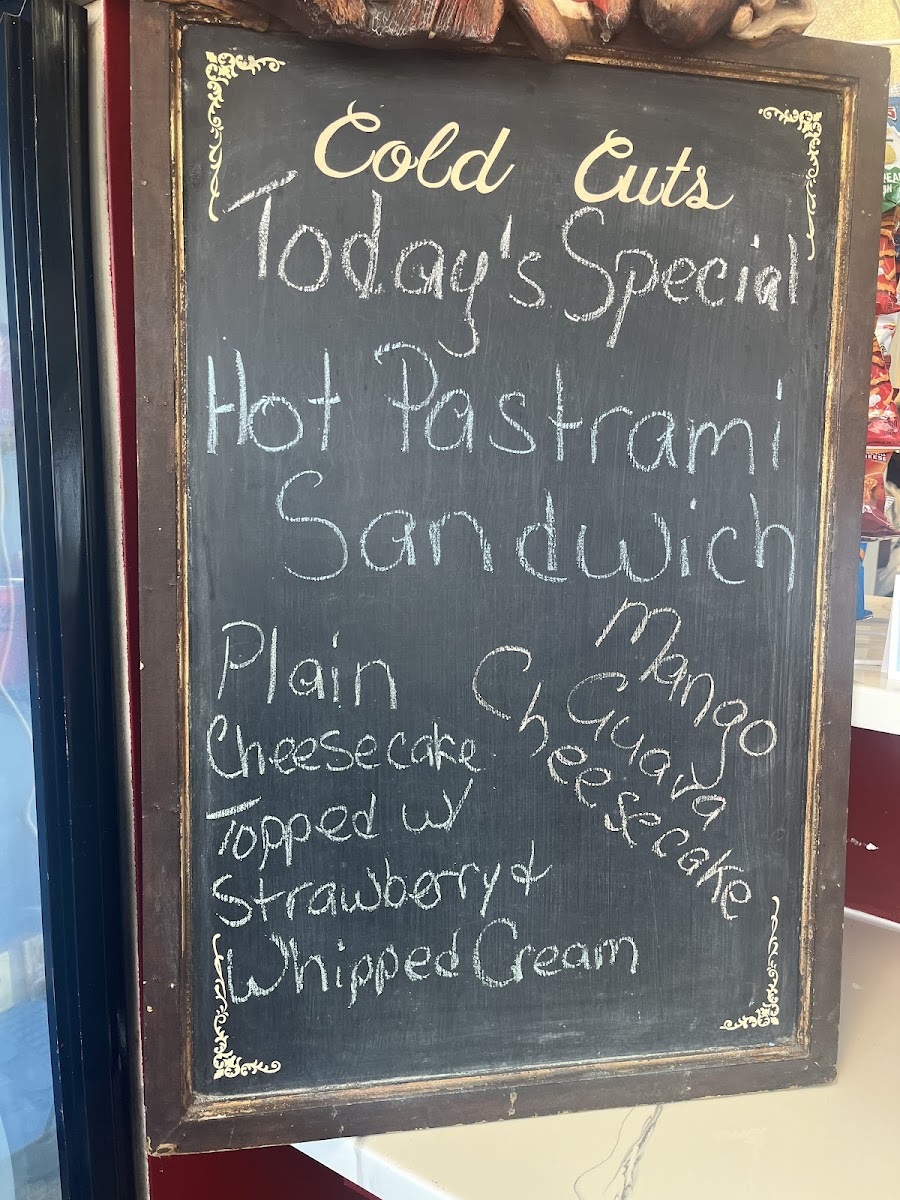 Cold Cuts
Today's Special
Hot Pastrami
Sandwich
Plain
Cheesecake
Topped w/
Strawberry &
Whipped Cream
Mango
Guava
Cheesecake